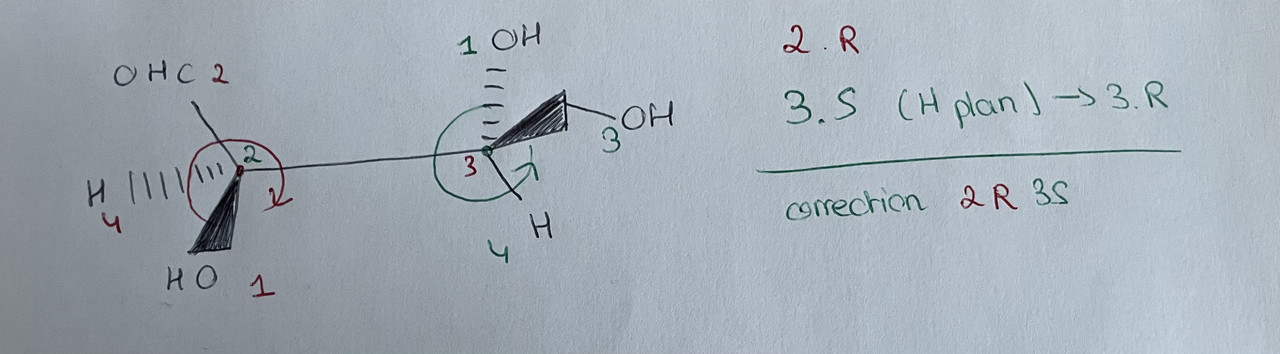 1 OH
OHC 2
OH
3
2
3
H
4
H
4
HO 1
2. R
3. S (H plan) → 3. R
correction 2R 3S